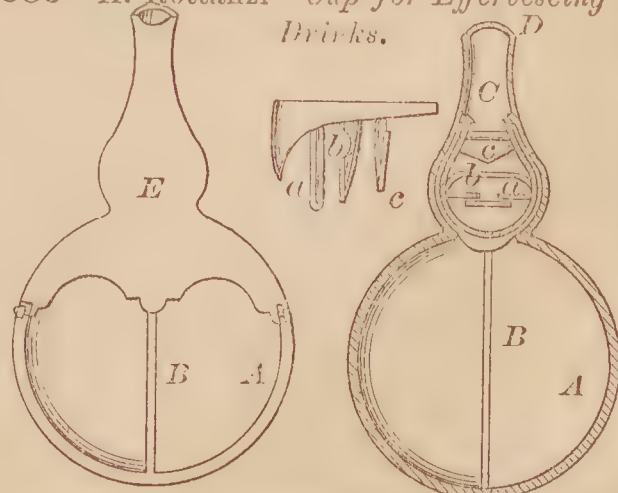 Cup for Effervescing
Drinks.
D
C
c
b a
E
b
a c
B A
B
A